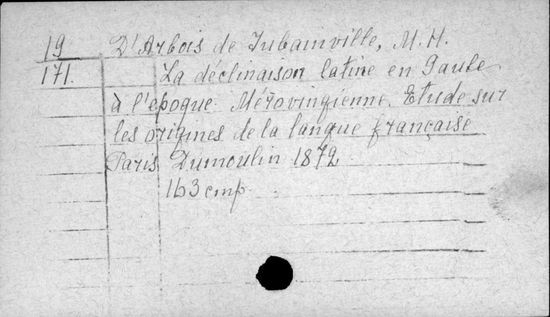 19 D'Arbois de Jubainville, M. H.
171. La déclinaison latine en Gaule
à l'epoque Mérovingienne. Etude sur
les origines de la langue française
Paris Dumoulin 1872
163 cmp.